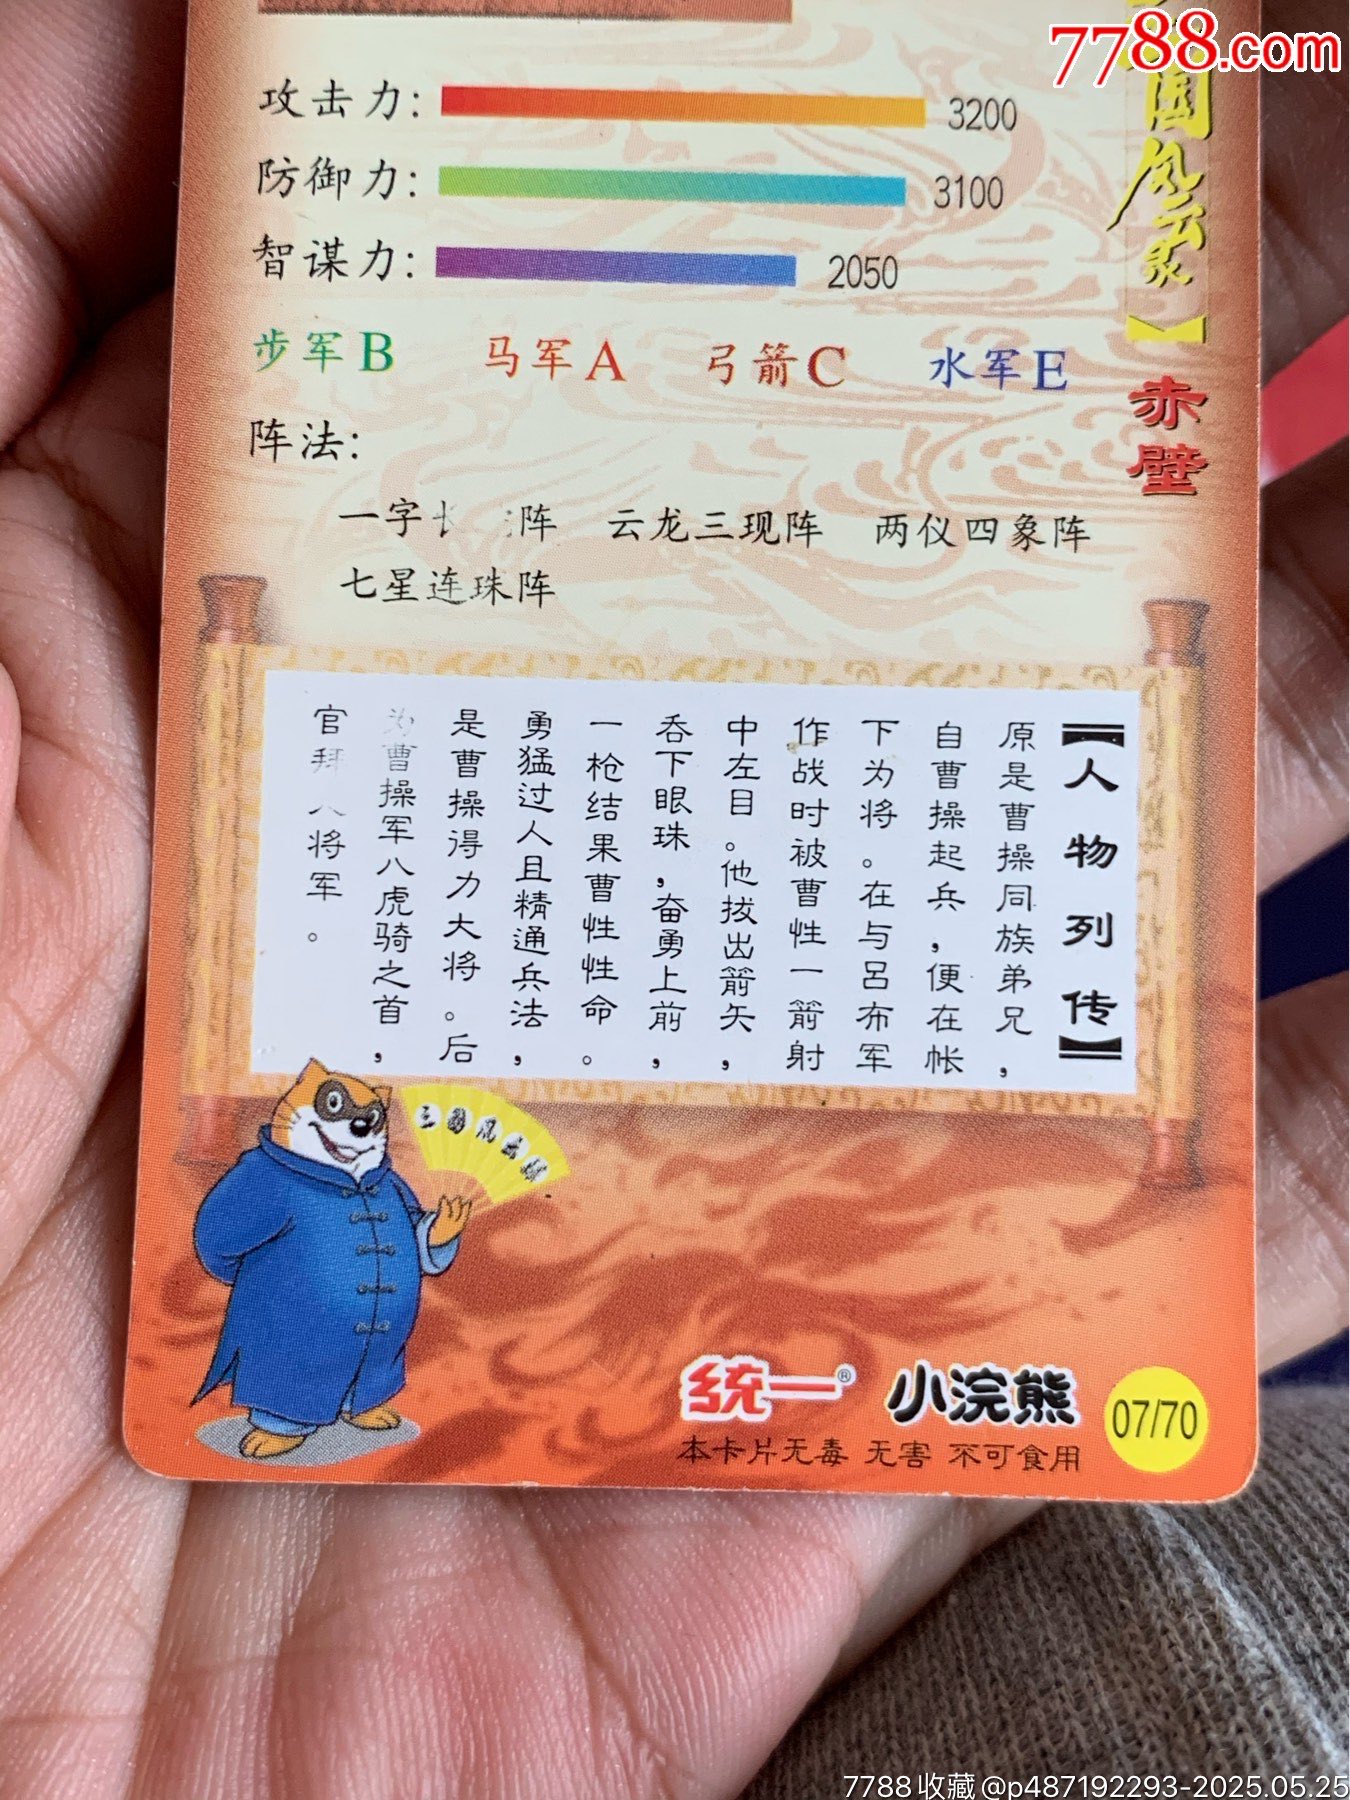 7788.com
国风云录】
赤壁
攻击力: 3200
防御力: 3100
智谋力: 2050
步军B 马军A 弓箭C 水军E
阵法:
一字长 阵 云龙三现阵 两仪四象阵
七星连珠阵
【人物列传】
原是曹操同族弟兄,
自曹操起兵,便在帐
下为将。在与吕布军
作战时被曹性一箭射
中左目。他拔出箭矢,
吞下眼珠,奋勇上前,
一枪结果曹性性命。
勇猛过人且精通兵法,
是曹操得力大将。后
为曹操军八虎骑之首,
官拜 将军。
三国风云录
统一® 小浣熊
07/70
本卡片无毒 无害 不可食用
7788收藏@p487192293-2025.05.25